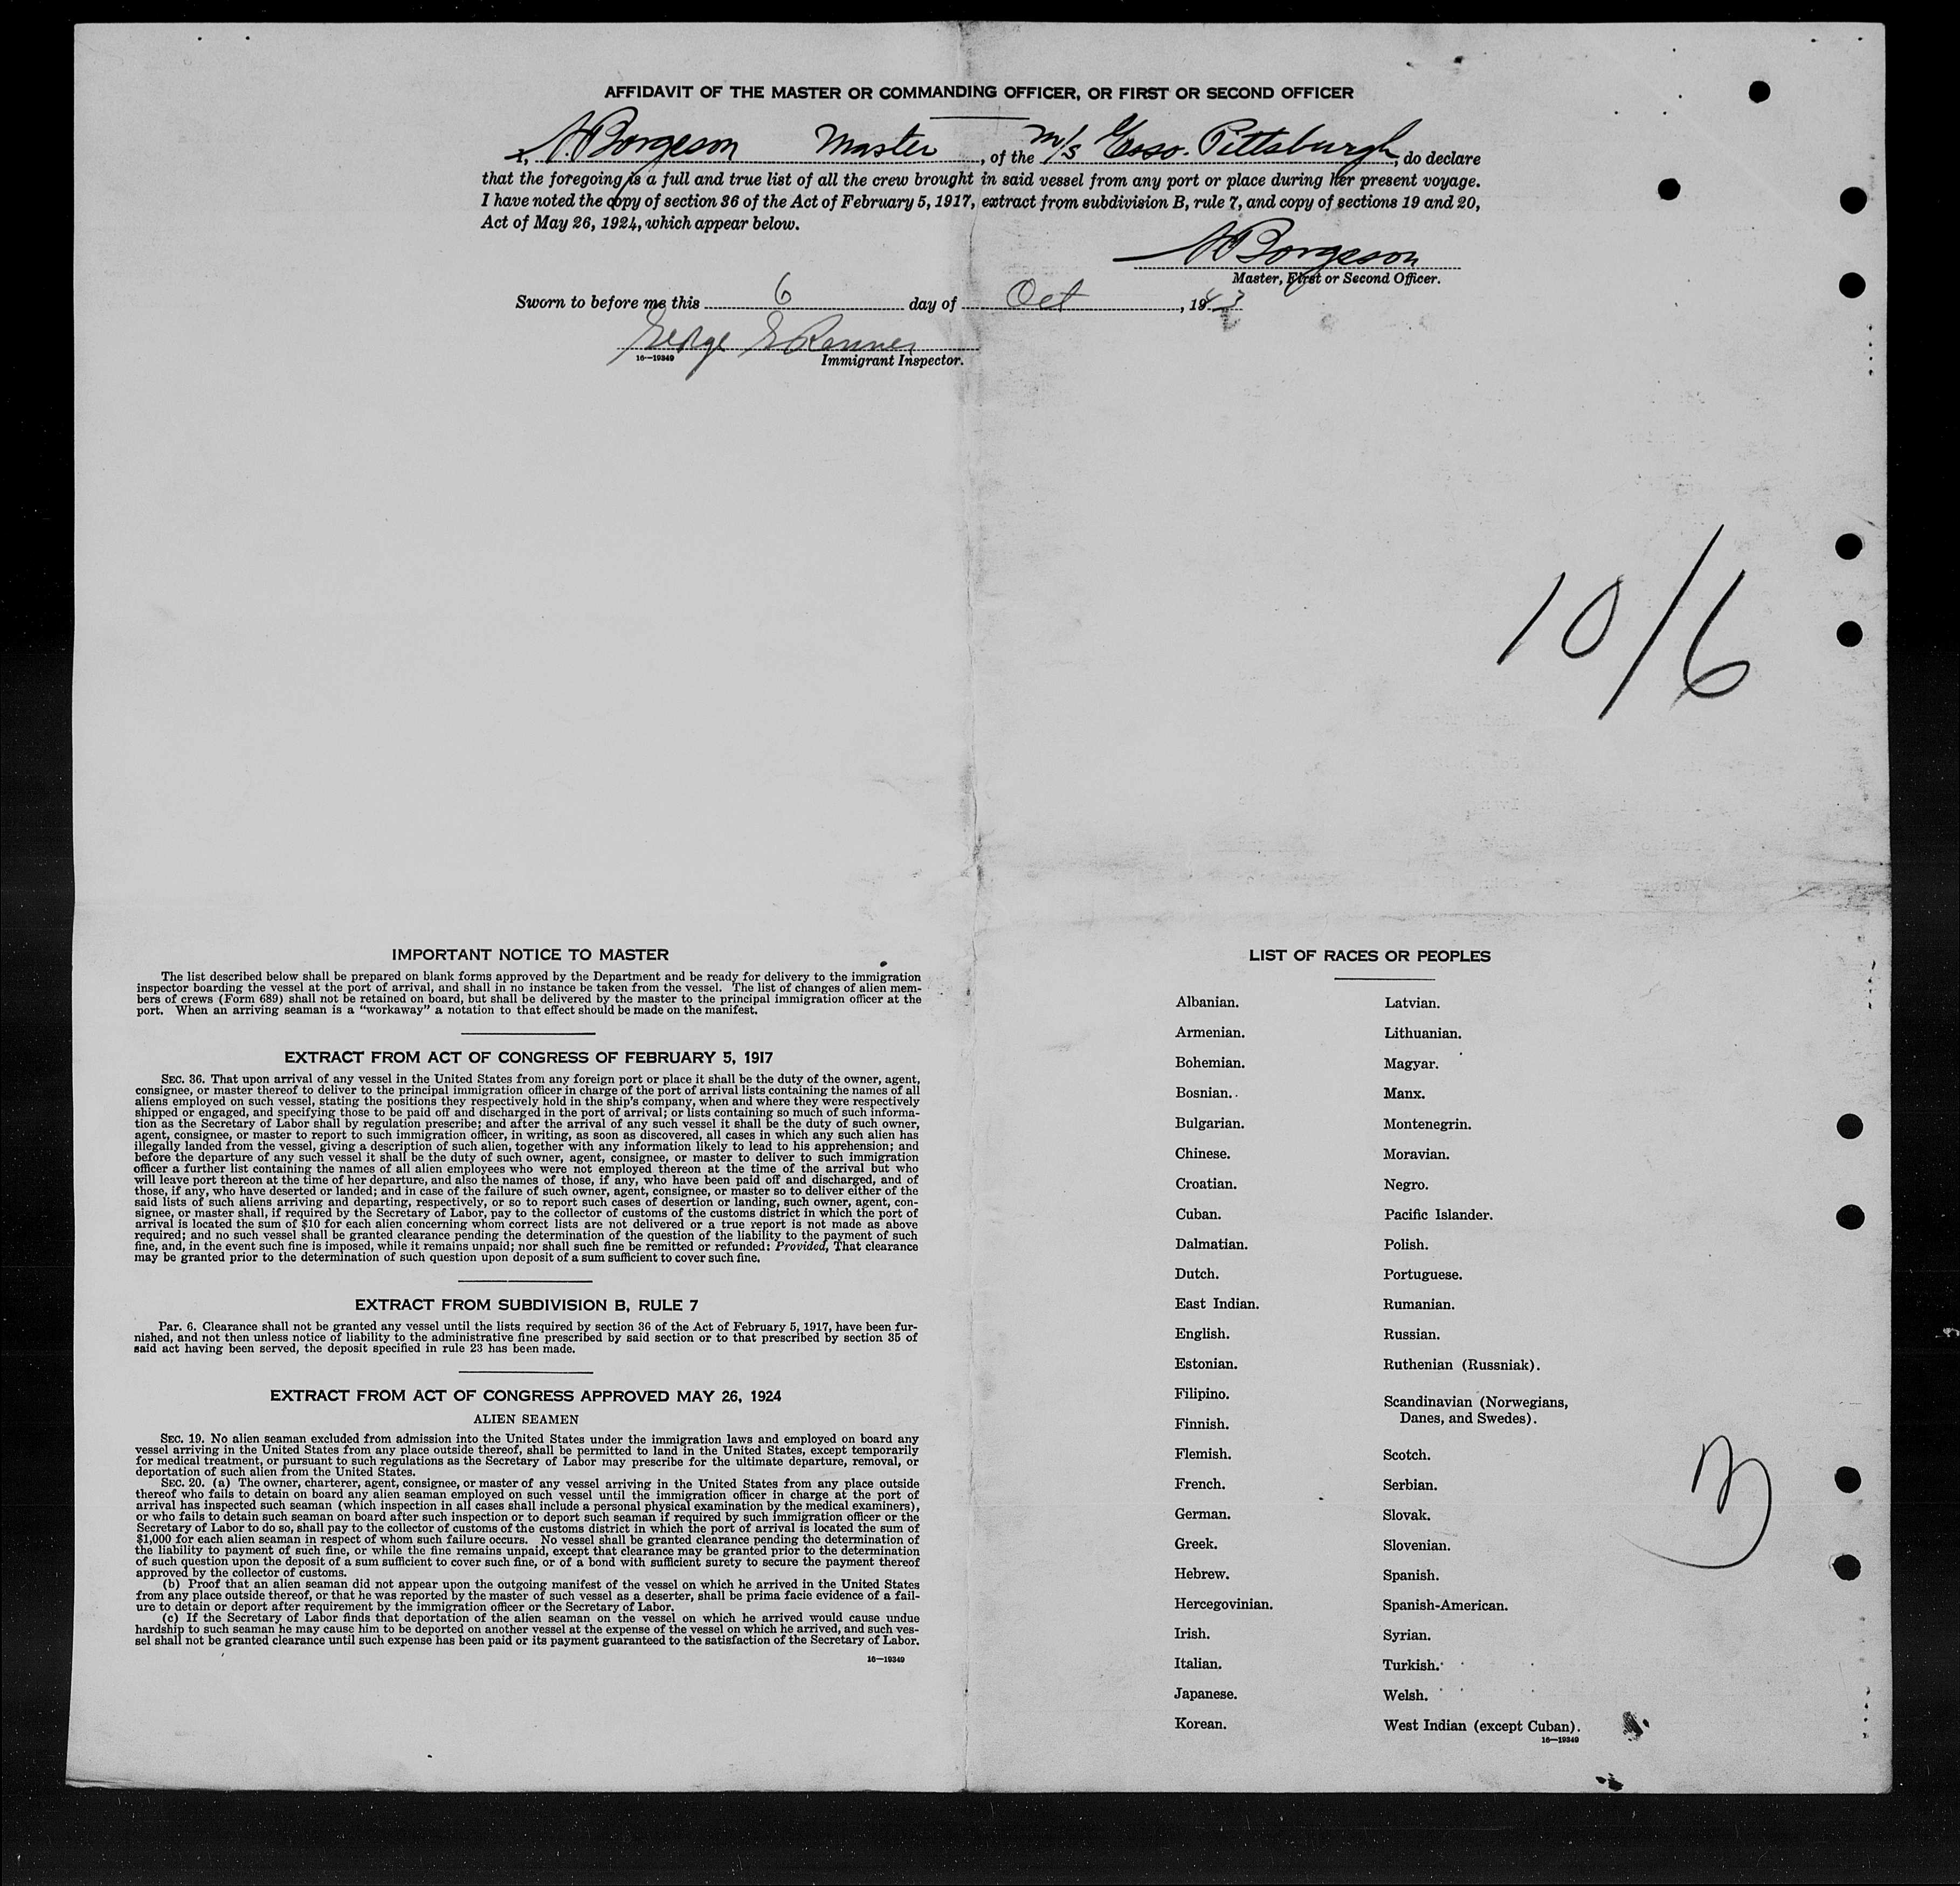 AFFIDAVIT OF THE MASTER OR COMMANDING OFFICER, OR FIRST OR SECOND OFFICER
I, A Borgeson Master, of the M/S Esso. Pittsburgh, do declare
that the foregoing is a full and true list of all the crew brought in said vessel from any port or place during her present voyage.
I have noted the copy of section 36 of the Act of February 5, 1917, extract from subdivision B, rule 7, and copy of sections 19 and 20,
Act of May 26, 1924, which appear below.
A Borgeson
Master, First or Second Officer.
Sworn to before me this 6 day of Oct, 1943
George E
16—19349 Immigrant Inspector.
10/6
IMPORTANT NOTICE TO MASTER
The list described below shall be prepared on blank forms approved by the Department and be ready for delivery to the immigration
inspector boarding the vessel at the port of arrival, and shall in no instance be taken from the vessel. The list of changes of alien mem-
bers of crews (Form 689) shall not be retained on board, but shall be delivered by the master to the principal immigration officer at the
port. When an arriving seaman is a "workaway" a notation to that effect should be made on the manifest.
EXTRACT FROM ACT OF CONGRESS OF FEBRUARY 5, 1917
SEC. 36. That upon arrival of any vessel in the United States from any foreign port or place it shall be the duty of the owner, agent,
consignee, or master thereof to deliver to the principal immigration officer in charge of the port of arrival lists containing the names of all
aliens employed on such vessel, stating the positions they respectively hold in the ship's company, when and where they were respectively
shipped or engaged, and specifying those to be paid off and discharged in the port of arrival; or lists containing so much of such informa-
tion as the Secretary of Labor shall by regulation prescribe; and after the arrival of any such vessel it shall be the duty of such owner,
agent, consignee, or master to report to such immigration officer, in writing, as soon as discovered, all cases in which any such alien has
illegally landed from the vessel, giving a description of such alien, together with any information likely to lead to his apprehension; and
before the departure of any such vessel it shall be the duty of such owner, agent, consignee, or master to deliver to such immigration
officer a further list containing the names of all alien employees who were not employed thereon at the time of the arrival but who
will leave port thereon at the time of her departure, and also the names of those, if any, who have been paid off and discharged, and of
those, if any, who have deserted or landed; and in case of the failure of such owner, agent, consignee, or master so to deliver either of the
said lists of such aliens arriving and departing, respectively, or so to report such cases of desertion or landing, such owner, agent, con-
signee, or master shall, if required by the Secretary of Labor, pay to the collector of customs of the customs district in which the port of
arrival is located the sum of $10 for each alien concerning whom correct lists are not delivered or a true report is not made as above
required; and no such vessel shall be granted clearance pending the determination of the question of the liability to the payment of such
fine, and, in the event such fine is imposed, while it remains unpaid; nor shall such fine be remitted or refunded: Provided, That clearance
may be granted prior to the determination of such question upon deposit of a sum sufficient to cover such fine.
EXTRACT FROM SUBDIVISION B, RULE 7
Par. 6. Clearance shall not be granted any vessel until the lists required by section 36 of the Act of February 5, 1917, have been fur-
nished, and not then unless notice of liability to the administrative fine prescribed by said section or to that prescribed by section 35 of
said act having been served, the deposit specified in rule 23 has been made.
EXTRACT FROM ACT OF CONGRESS APPROVED MAY 26, 1924
ALIEN SEAMEN
SEC. 19. No alien seaman excluded from admission into the United States under the immigration laws and employed on board any
vessel arriving in the United States from any place outside thereof, shall be permitted to land in the United States, except temporarily
for medical treatment, or pursuant to such regulations as the Secretary of Labor may prescribe for the ultimate departure, removal, or
deportation of such alien from the United States.
SEC. 20. (a) The owner, charterer, agent, consignee, or master of any vessel arriving in the United States from any place outside
thereof who fails to detain on board any alien seaman employed on such vessel until the immigration officer in charge at the port of
arrival has inspected such seaman (which inspection in all cases shall include a personal physical examination by the medical examiners),
or who fails to detain such seaman on board after such inspection or to deport such seaman if required by such immigration officer or the
Secretary of Labor to do so, shall pay to the collector of customs of the customs district in which the port of arrival is located the sum of
$1,000 for each alien seaman in respect of whom such failure occurs. No vessel shall be granted clearance pending the determination of
the liability to payment of such fine, or while the fine remains unpaid, except that clearance may be granted prior to the determination
of such question upon the deposit of a sum sufficient to cover such fine, or of a bond with sufficient surety to secure the payment thereof
approved by the collector of customs.
(b) Proof that an alien seaman did not appear upon the outgoing manifest of the vessel on which he arrived in the United States
from any place outside thereof, or that he was reported by the master of such vessel as a deserter, shall be prima facie evidence of a fail-
ure to detain or deport after requirement by the immigration officer or the Secretary of Labor.
(c) If the Secretary of Labor finds that deportation of the alien seaman on the vessel on which he arrived would cause undue
hardship to such seaman he may cause him to be deported on another vessel at the expense of the vessel on which he arrived, and such ves-
sel shall not be granted clearance until such expense has been paid or its payment guaranteed to the satisfaction of the Secretary of Labor.
16—19349
LIST OF RACES OR PEOPLES
Albanian.
Armenian.
Bohemian.
Bosnian.
Bulgarian.
Chinese.
Croatian.
Cuban.
Dalmatian.
Dutch.
East Indian.
English.
Estonian.
Filipino.
Finnish.
Flemish.
French.
German.
Greek.
Hebrew.
Hercegovinian.
Irish.
Italian.
Japanese.
Korean.
Latvian.
Lithuanian.
Magyar.
Manx.
Montenegrin.
Moravian.
Negro.
Pacific Islander.
Polish.
Portuguese.
Rumanian.
Russian.
Ruthenian (Russniak).
Scandinavian (Norwegians,
Danes, and Swedes).
Scotch.
Serbian.
Slovak.
Slovenian.
Spanish.
Spanish-American.
Syrian.
Turkish.
Welsh.
West Indian (except Cuban).
16—19349
3